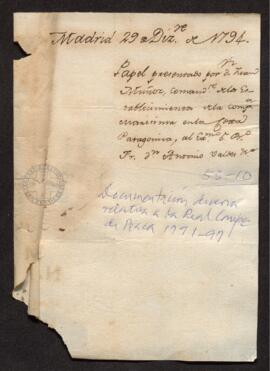 Madrid 29 de Diz.re de 1794.
Papel presentado por dn Juan
Muñoz, comand.te de los Es-
tablecimientos de la compa.
maritima en la Costa
Patagonica, al Exmo Sor Bo
Fr. dn Antonio Valdes
53-10
Documentación diversa
relativa a la Real Compª
de Pesca 1771-97